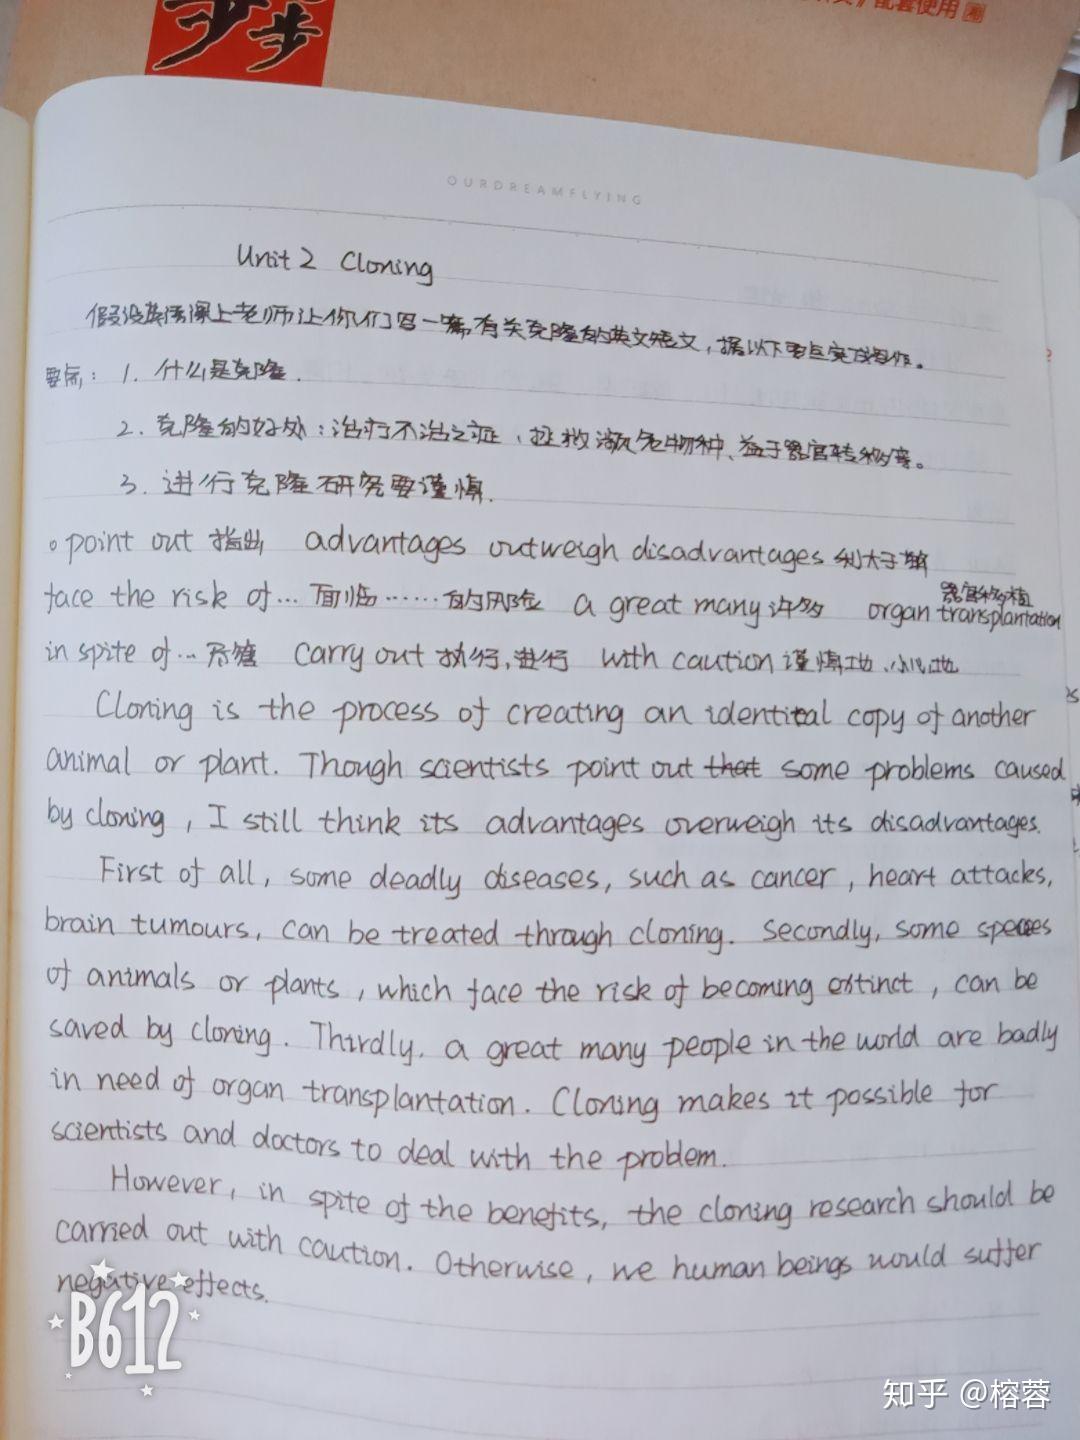 步步
配套使用
OURDREAMFLYING
Unit 2 Cloning
假设英语课上老师让你们写一篇有关克隆的英文短文,据以下要点完成写作。
要点: 1. 什么是克隆.
2. 克隆的好处:治疗不治之症、拯救濒危物种、益于器官转移等。
3. 进行克隆研究要谨慎.
。point out 指出 advantages outweigh disadvantages 利大于弊
face the risk of... 面临……的风险 a great many 许多 organ transplantation 器官移植
in spite of... 尽管 carry out 执行,进行 with caution 谨慎地、小心地
Cloning is the process of creating an identical copy of another
animal or plant. Though scientists point out that some problems caused
by cloning, I still think its advantages overweigh its disadvantages.
First of all, some deadly diseases, such as cancer, heart attacks,
brain tumours, can be treated through cloning. Secondly, some species
of animals or plants, which face the risk of becoming extinct, can be
saved by cloning. Thirdly, a great many people in the world are badly
in need of organ transplantation. Cloning makes it possible for
scientists and doctors to deal with the problem.
However, in spite of the benefits, the cloning research should be
carried out with caution. Otherwise, we human beings would suffer
negative effects.
B612
知乎 @榕蓉